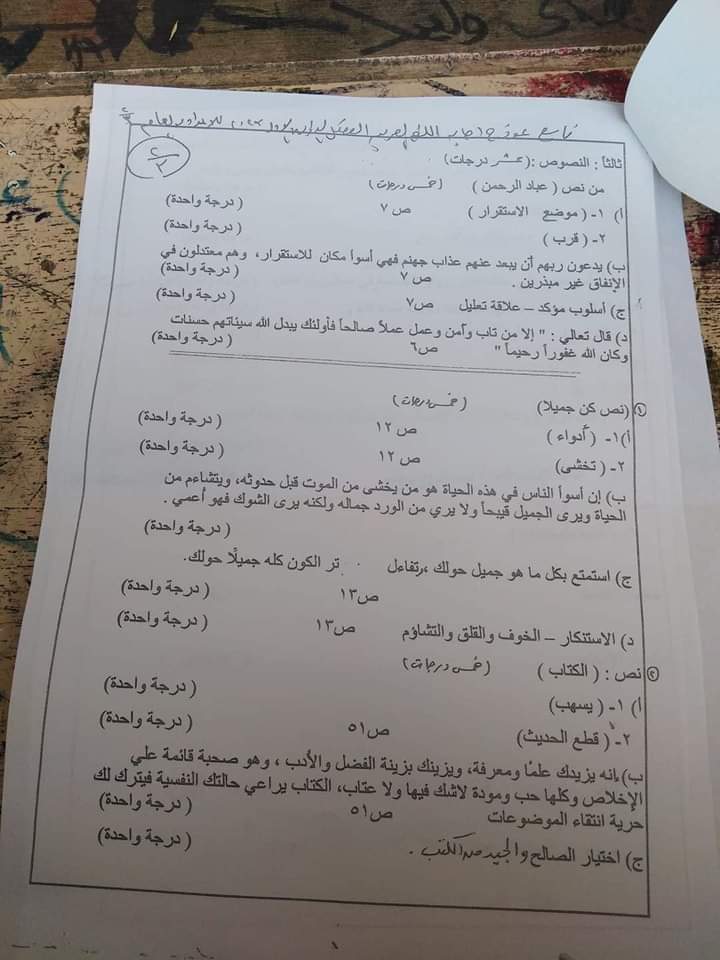 تابع نموذج إجابة اللغة العربية
٢/٣
ثالثاً : النصوص :(عشر درجات)
من نص ( عباد الرحمن ) (خمس درجات)
أ) ١- ( موضع الاستقرار ) ص ٧ ( درجة واحدة)
٢- ( قرب ) ( درجة واحدة)
ب) يدعون ربهم أن يبعد عنهم عذاب جهنم فهي أسوأ مكان للاستقرار، وهم معتدلون في
الإنفاق غير مبذرين . ص ٧ ( درجة واحدة)
ج) أسلوب مؤكد – علاقة تعليل ص٧ ( درجة واحدة)
د) قال تعالي : " إلا من تاب وآمن وعمل عملاً صالحاً فأولئك يبدل الله سيئاتهم حسنات
وكان الله غفوراً رحيماً " ص٦ ( درجة واحدة)
١ (نص كن جميلا) (خمس درجات)
أ)١- ( أدواء ) ص ١٢ ( درجة واحدة)
٢- ( تخشى) ص ١٢ ( درجة واحدة)
ب) إن أسوأ الناس في هذه الحياة هو من يخشى من الموت قبل حدوثه، ويتشاءم من
الحياة ويرى الجميل قبيحاً ولا يري من الورد جماله ولكنه يرى الشوك فهو أعمي .
( درجة واحدة)
ج) استمتع بكل ما هو جميل حولك ،وتفاءل تر الكون كله جميلًا حولك.
ص١٣ ( درجة واحدة)
د) الاستنكار – الخوف والقلق والتشاؤم ص١٣ ( درجة واحدة)
٢ نص : ( الكتاب ) (خمس درجات)
أ) ١- ( يسهب) ( درجة واحدة)
٢- ( قطع الحديث) ص٥١ ( درجة واحدة)
ب) إنه يزيدك علمًا ومعرفة، ويزينك بزينة الفضل والأدب ، وهو صحبة قائمة علي
الإخلاص وكلها حب ومودة لاشك فيها ولا عتاب، الكتاب يراعي حالتك النفسية فيترك لك
حرية انتقاء الموضوعات ص٥١ ( درجة واحدة)
ج) اختيار الصالح والجيد من الكتب . ( درجة واحدة)